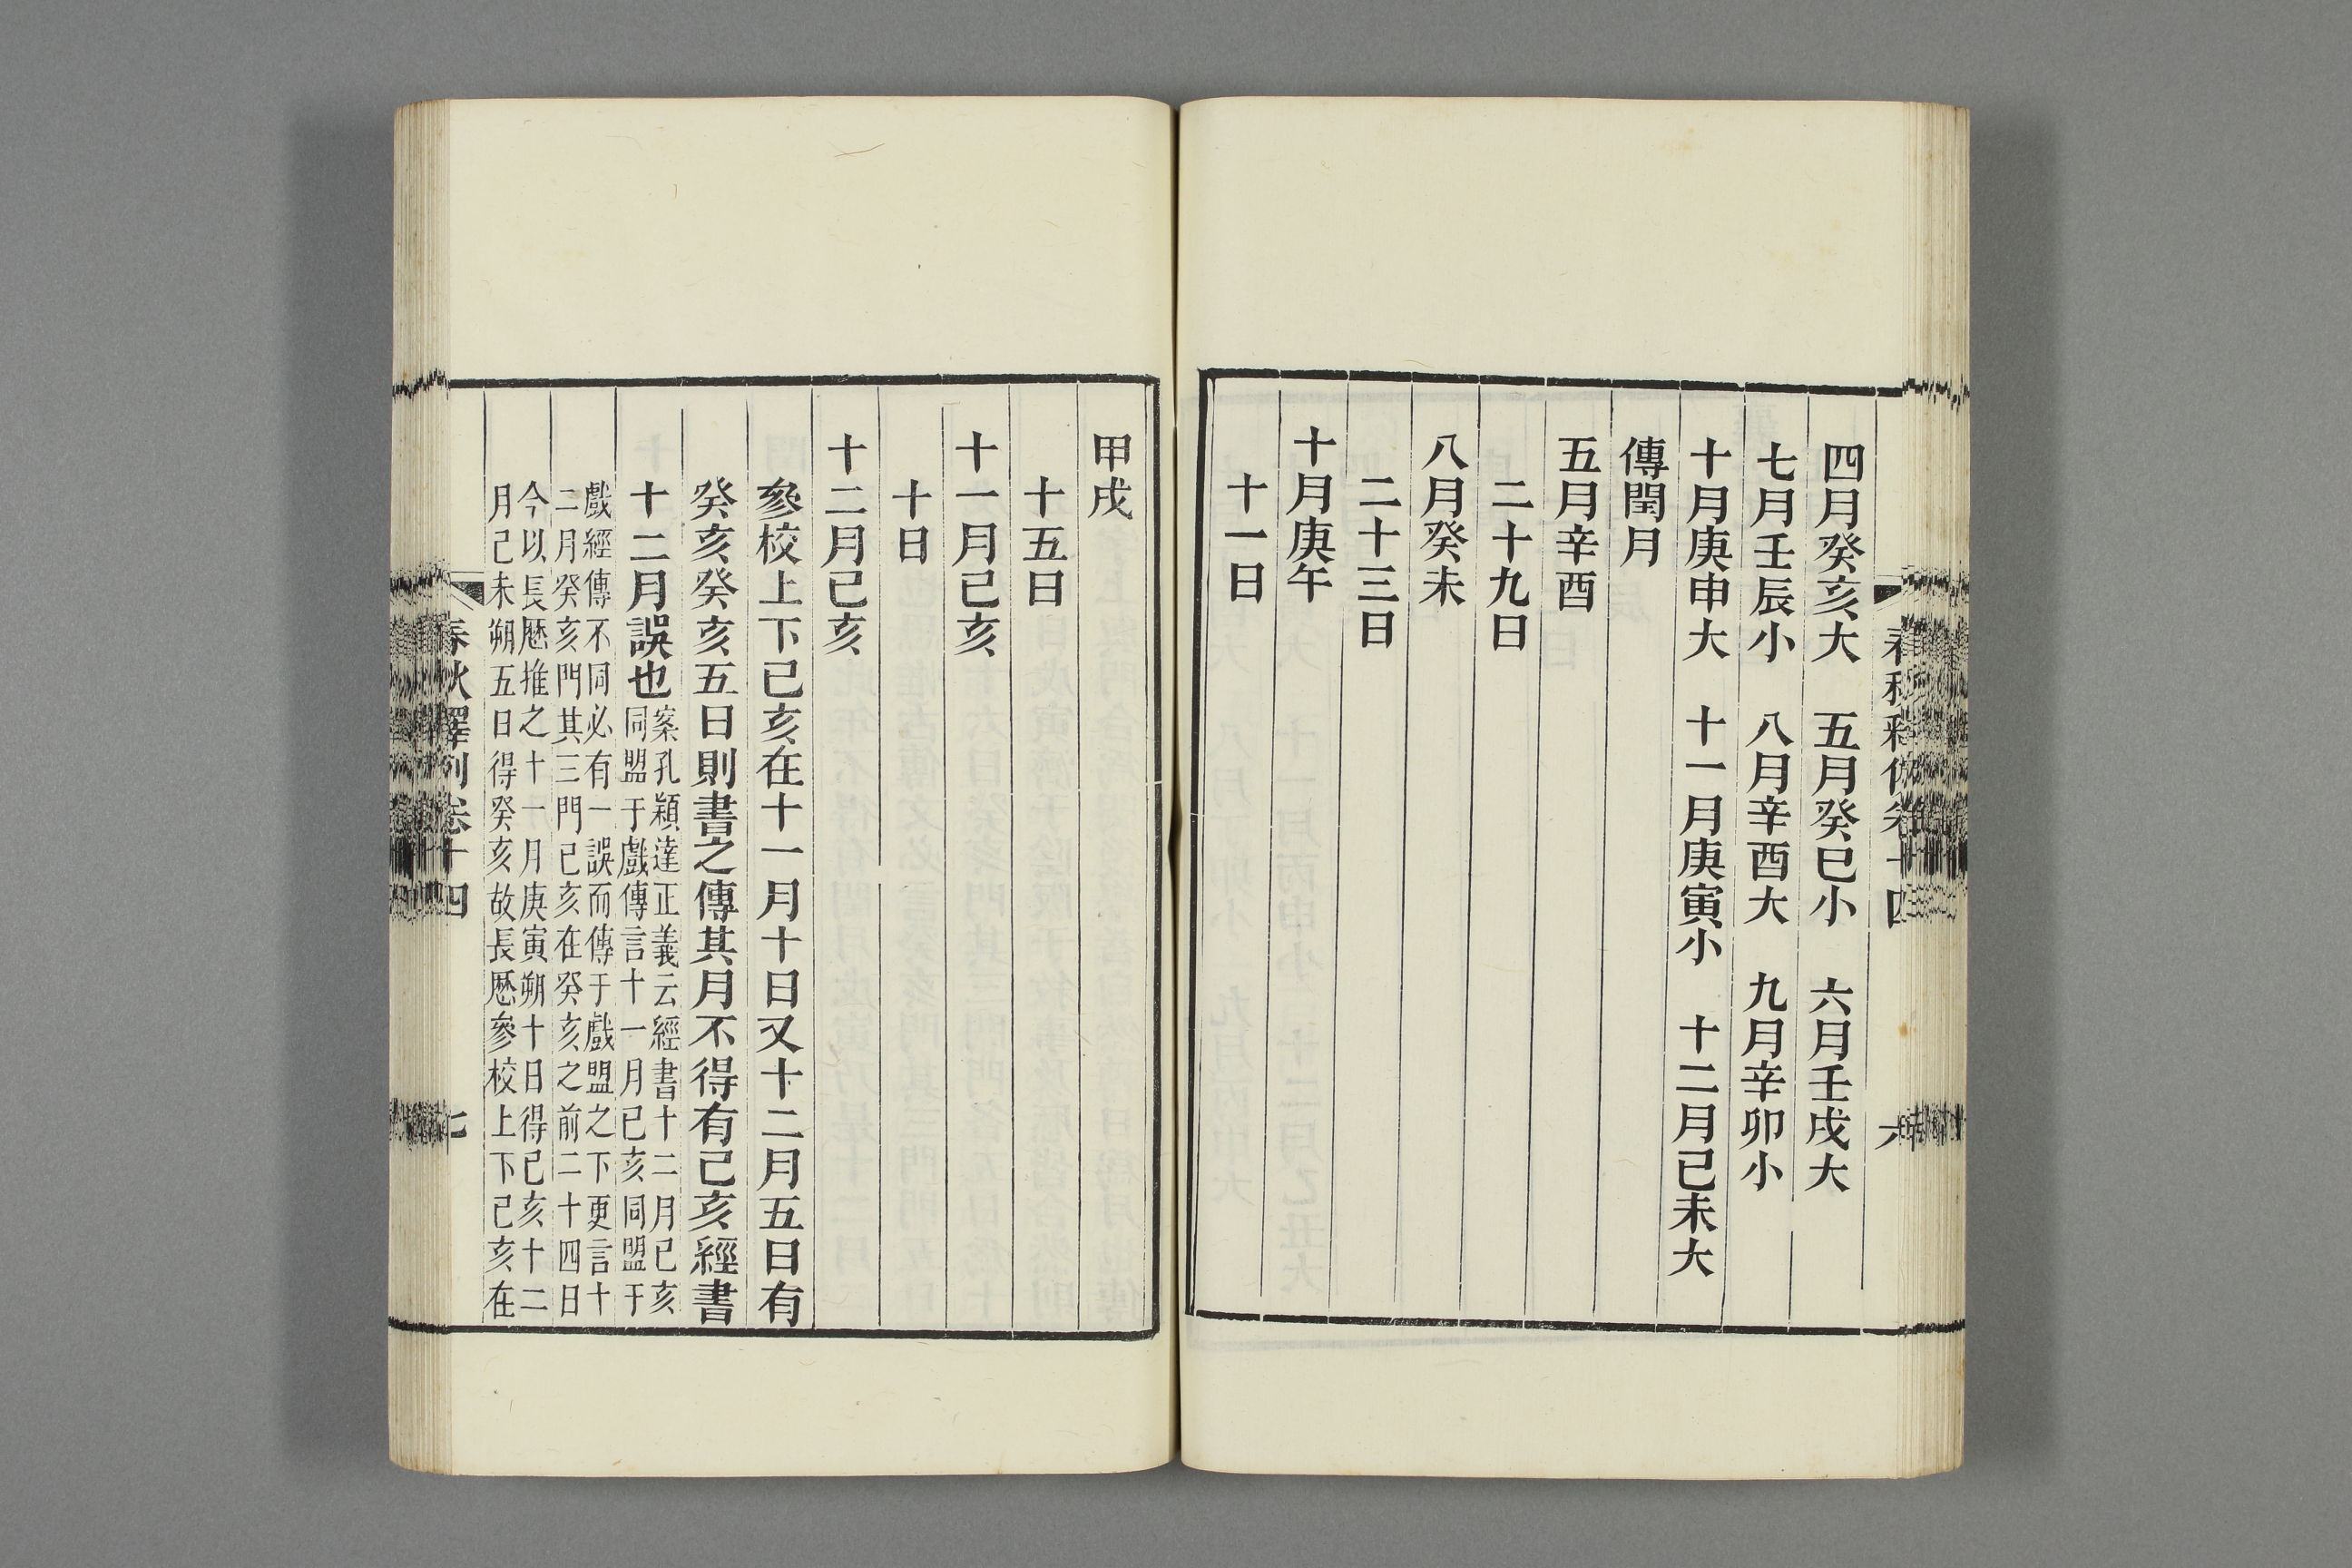 四月癸亥大　五月癸巳小　六月壬戌大
七月壬辰小　八月辛酉大　九月辛卯小
十月庚申大　十一月庚寅小　十二月己未大
傳閏月
五月辛酉
二十九日
八月癸未
二十三日
十月庚午
十一日
甲戌
十五日
十一月己亥
十日
十二月己亥
參校上下己亥在十一月十日又十二月五日有
癸亥癸亥五日則書之傳其月不得有己亥經書
十二月誤也
案孔穎達正義云經書十二月己亥
同盟于戲傳言十一月己亥同盟于
戲經傳不同必有一誤而傳于戲盟之下更言十
二月癸亥門其三門己亥在癸亥之前二十四日
今以長厯推之十一月庚寅朔十日得己亥十二
月己未朔五日得癸亥故長厯參校上下己亥在
春秋釋例卷十四
七